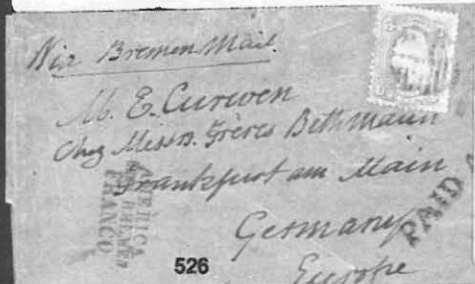 Via Bremen Mail.
Mr. E. Curwen
Chez Messrs. Frères Bethmann
Frankfurt am Main
Germany
Europe
AMERICA
BREMEN
FRANCO
PAID
526